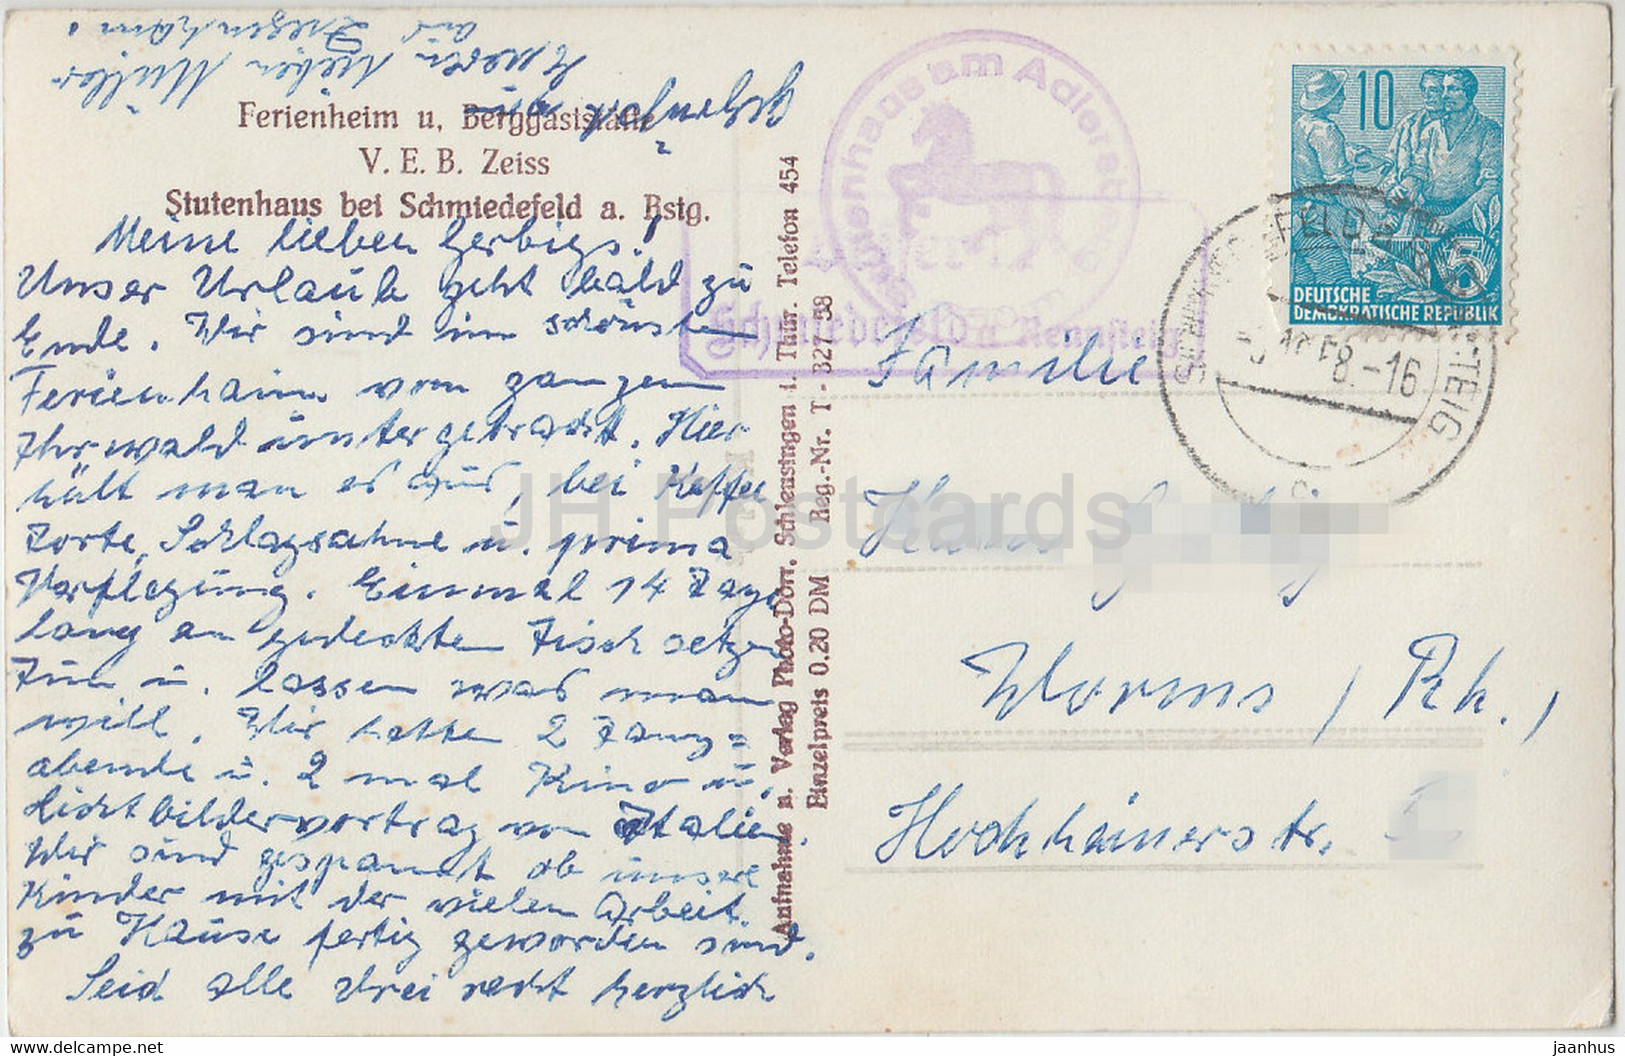 Ferienheim u. Berggaststätte
V. E. B. Zeiss
Stutenhaus bei Schmiedefeld a. Rstg.
Meine lieben Gerbigs!
Unser Urlaub geht bald zu
Ende. Wir sind im schönsten
Ferienheim vom ganzen
Thr. wald untergebracht. Hier
hält man es aus, bei Kaffee
Torte, Schlagsahne u. prima
Verpflegung. Einmal 14 Tage
lang an gedeckten Tisch setzen
zum u. lassen was man
will. Wir hatten 2 Tanz=
abende u. 2 mal Kino u.
Lichtbildervortrag von Italien.
Wir sind gespannt ob unsere
Kinder mit der vielen Arbeit
zu Hause fertig geworden sind.
Seid alle drei recht herzlich
gegrüßt von
Euren lieben Müller
aus
Aufnahme u. Verlag Photo-Dörr, Schleusingen i. Thür. Telefon 454
Einzelpreis 0.20 DM Reg.-Nr. T - 327 58
Stutenhaus am Adlersberg
Schmiedefeld a Rennsteig
10
5
DEUTSCHE
DEMOKRATISCHE REPUBLIK
58.-16
Familie
Worms / Rh.,
Hochheimerstr.
JH Postcards
www.delcampe.net
jaanhus